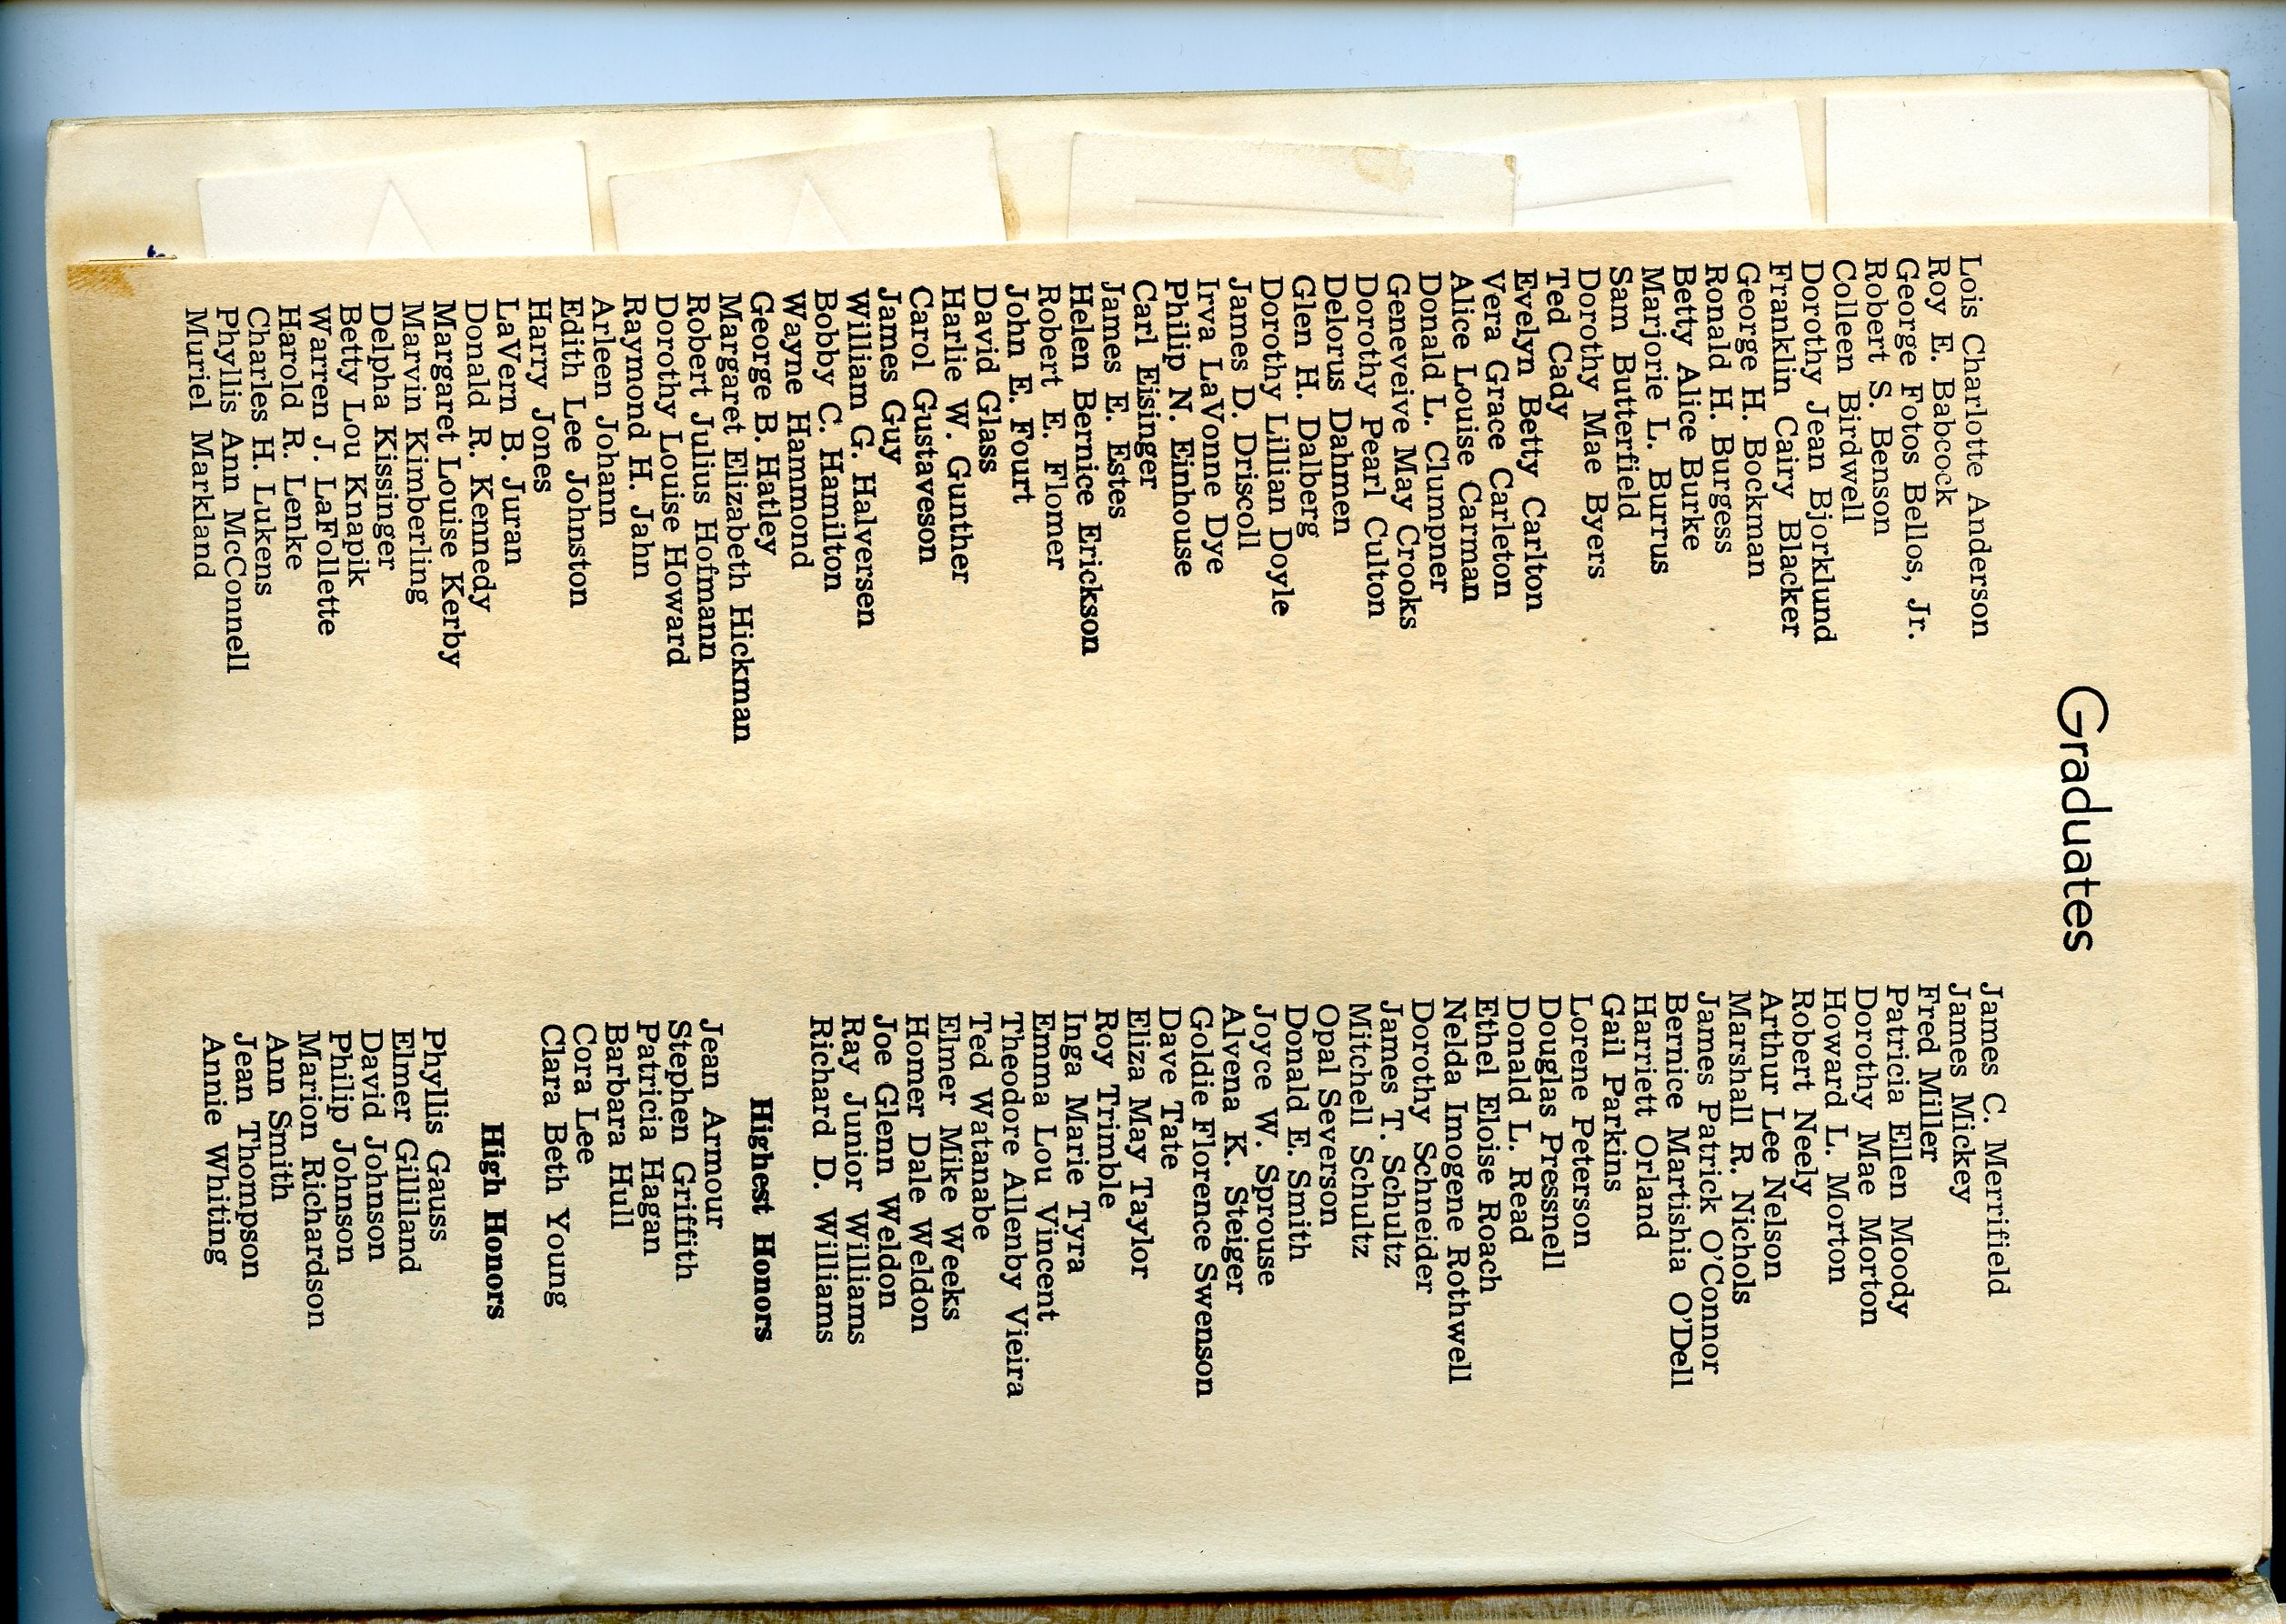 Graduates
Lois Charlotte Anderson
Roy E. Babcock
George Fotos Bellos, Jr.
Robert S. Benson
Colleen Birdwell
Dorothy Jean Bjorklund
Franklin Cairy Blacker
George H. Bockman
Ronald H. Burgess
Betty Alice Burke
Marjorie L. Burrus
Sam Butterfield
Dorothy Mae Byers
Ted Cady
Evelyn Betty Carlton
Vera Grace Carleton
Alice Louise Carman
Donald L. Clumpner
Geneveive May Crooks
Dorothy Pearl Culton
Delorus Dahmen
Glen H. Dalberg
Dorothy Lillian Doyle
James D. Driscoll
Irva LaVonne Dye
Philip N. Einhouse
Carl Eisinger
James E. Estes
Helen Bernice Erickson
Robert E. Flomer
John E. Fourt
David Glass
Harlie W. Gunther
Carol Gustaveson
James Guy
William G. Halversen
Bobby C. Hamilton
Wayne Hammond
George B. Hatley
Margaret Elizabeth Hickman
Robert Julius Hofmann
Dorothy Louise Howard
Raymond H. Jahn
Arleen Johann
Edith Lee Johnston
Harry Jones
LaVern B. Juran
Donald R. Kennedy
Margaret Louise Kerby
Marvin Kimberling
Delpha Kissinger
Betty Lou Knapik
Warren J. LaFollette
Harold R. Lenke
Charles H. Lukens
Phyllis Ann McConnell
Muriel Markland
James C. Merrifield
James Mickey
Fred Miller
Patricia Ellen Moody
Dorothy Mae Morton
Howard L. Morton
Robert Neely
Arthur Lee Nelson
Marshall R. Nichols
James Patrick O'Connor
Bernice Martishia O'Dell
Harriett Orland
Gail Parkins
Lorene Peterson
Douglas Pressnell
Donald L. Read
Ethel Eloise Roach
Nelda Imogene Rothwell
Dorothy Schneider
James T. Schultz
Mitchell Schultz
Opal Severson
Donald E. Smith
Joyce W. Sprouse
Alvena K. Steiger
Goldie Florence Swenson
Dave Tate
Eliza May Taylor
Roy Trimble
Inga Marie Tyra
Emma Lou Vincent
Theodore Allenby Vieira
Ted Watanabe
Elmer Mike Weeks
Homer Dale Weldon
Joe Glenn Weldon
Ray Junior Williams
Richard D. Williams
Highest Honors
Jean Armour
Stephen Griffith
Patricia Hagan
Barbara Hull
Cora Lee
Clara Beth Young
High Honors
Phyllis Gauss
Elmer Gilliland
David Johnson
Philip Johnson
Marion Richardson
Ann Smith
Jean Thompson
Annie Whiting